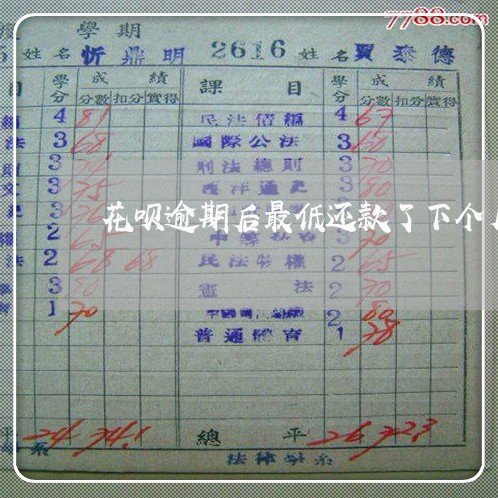 7788.com
學期
姓名 忻鼎明 2616 姓名 賈泰德
目 學分 成績 課目 學分 成績
分數 扣分 實得 分數 扣分 實得
4 81 民法債編 4 67
法 3 68 國際公法 3 60
3 刑法總則 3 70
3 75 西洋通史 3 80
花呗逾期后最低还款了下个
2 70
法 2 68 68 民法物權 2 65
3 80 憲法 2 70
1 70 2 80
普通體育 1 78
24 74.1 總平 26 72.3
法律學系